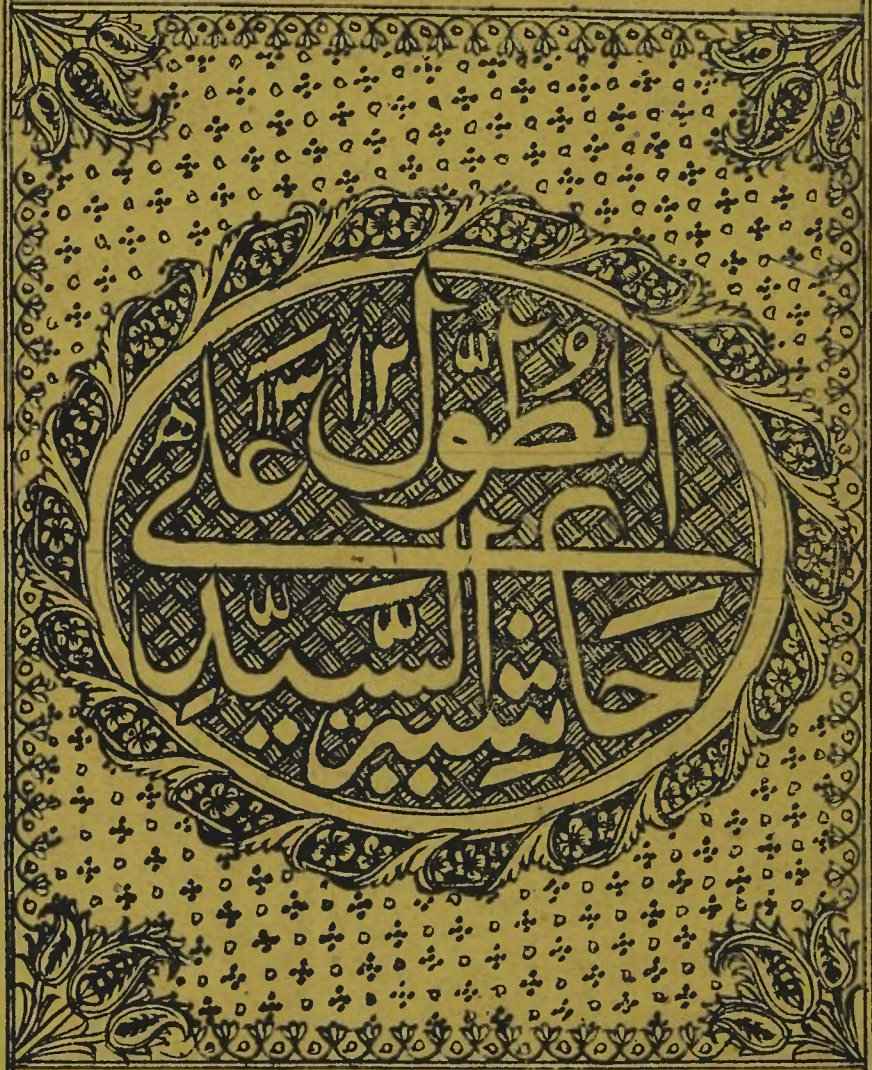 حاشية السيد
على المطول
١٣١٢ ه